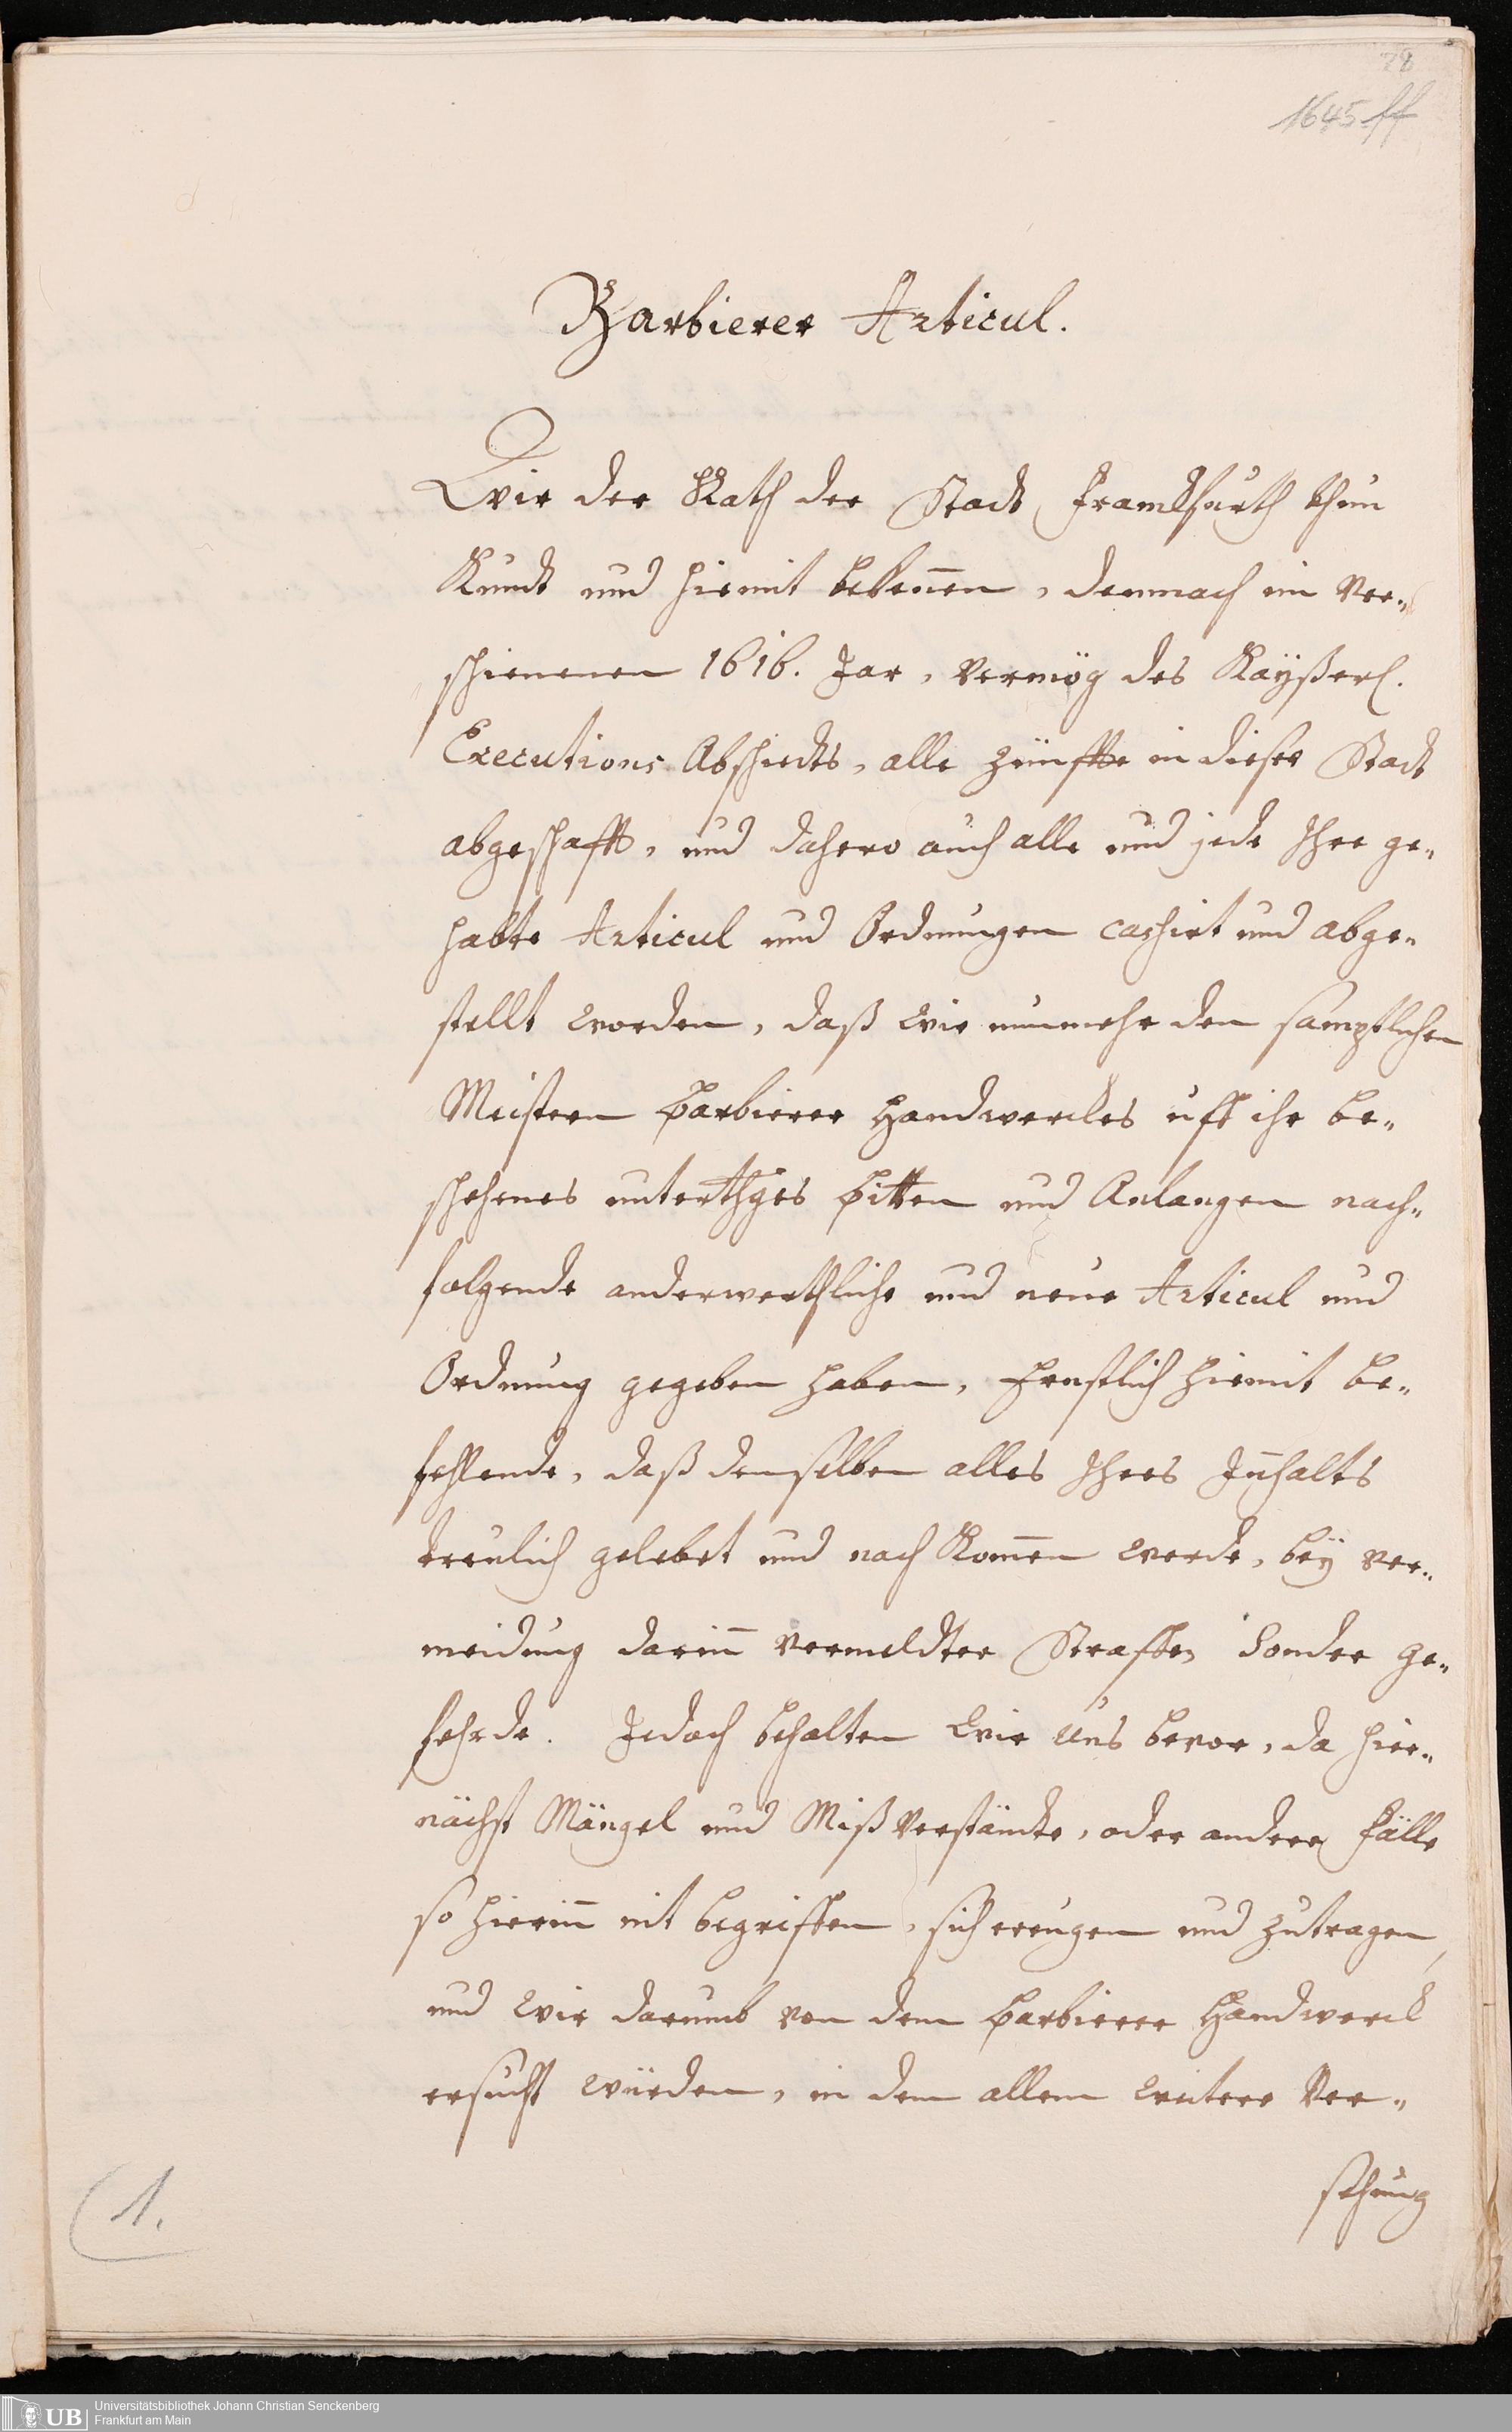 78
1645 ff
Barbierer Articul.
Wir der Rath der Stadt Franckfurth thun
Kundt und hiemit bekennen, demnach im ver-
schienenen 1616. Jar, vermög des Kayßerl.
Executions Abschiedts, alle zünffte in dieser Stadt
abgeschafft, und dahero auch alle und jede Ihre ge-
habte Articul und Ordnungen cashirt und abge-
stellt worden, daß Wir nunmehr den samptlichen
Meistern Barbierer Handwerckes uff ihr be-
schehenes unterthges bitten und Anlangen nach-
folgende anderwerthliche und neue Articul und
Ordnung gegeben haben, Ernstlich hiemit be-
fehlende, daß demselben alles Ihres Inhalts
treulich gelebet und nach Kommen werde, bey ver-
meidung darinn vermeldter Straffen Sonder ge-
fehrde. Jedoch behalten Wir Uns bevor, da hier-
nächst Mängel und Mißverständte, oder andere Fälle
so hierinn nit begriffen, sich ereugen und zutragen,
und Wir darumb von dem Barbierer Handwerck
ersucht würden, in dem allem weitere Ver-
sehung
1.
UB Universitätsbibliothek Johann Christian Senckenberg
Frankfurt am Main